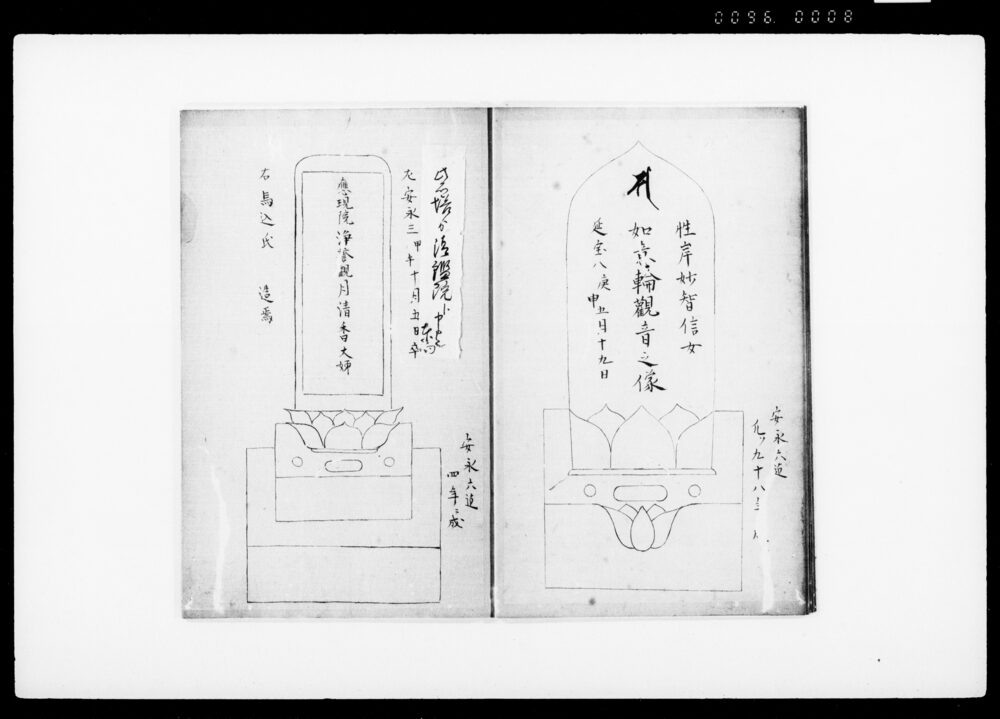 0096. 0008
性岸妙智信女
如意輪觀音之像
延宝八庚申五月十九日
安永六迠
凡ソ九十八
左安永三甲午十月五日卒
應現院浄誉觀月清香大姉
右馬込氏 造焉
安永六迠
四年ニ成